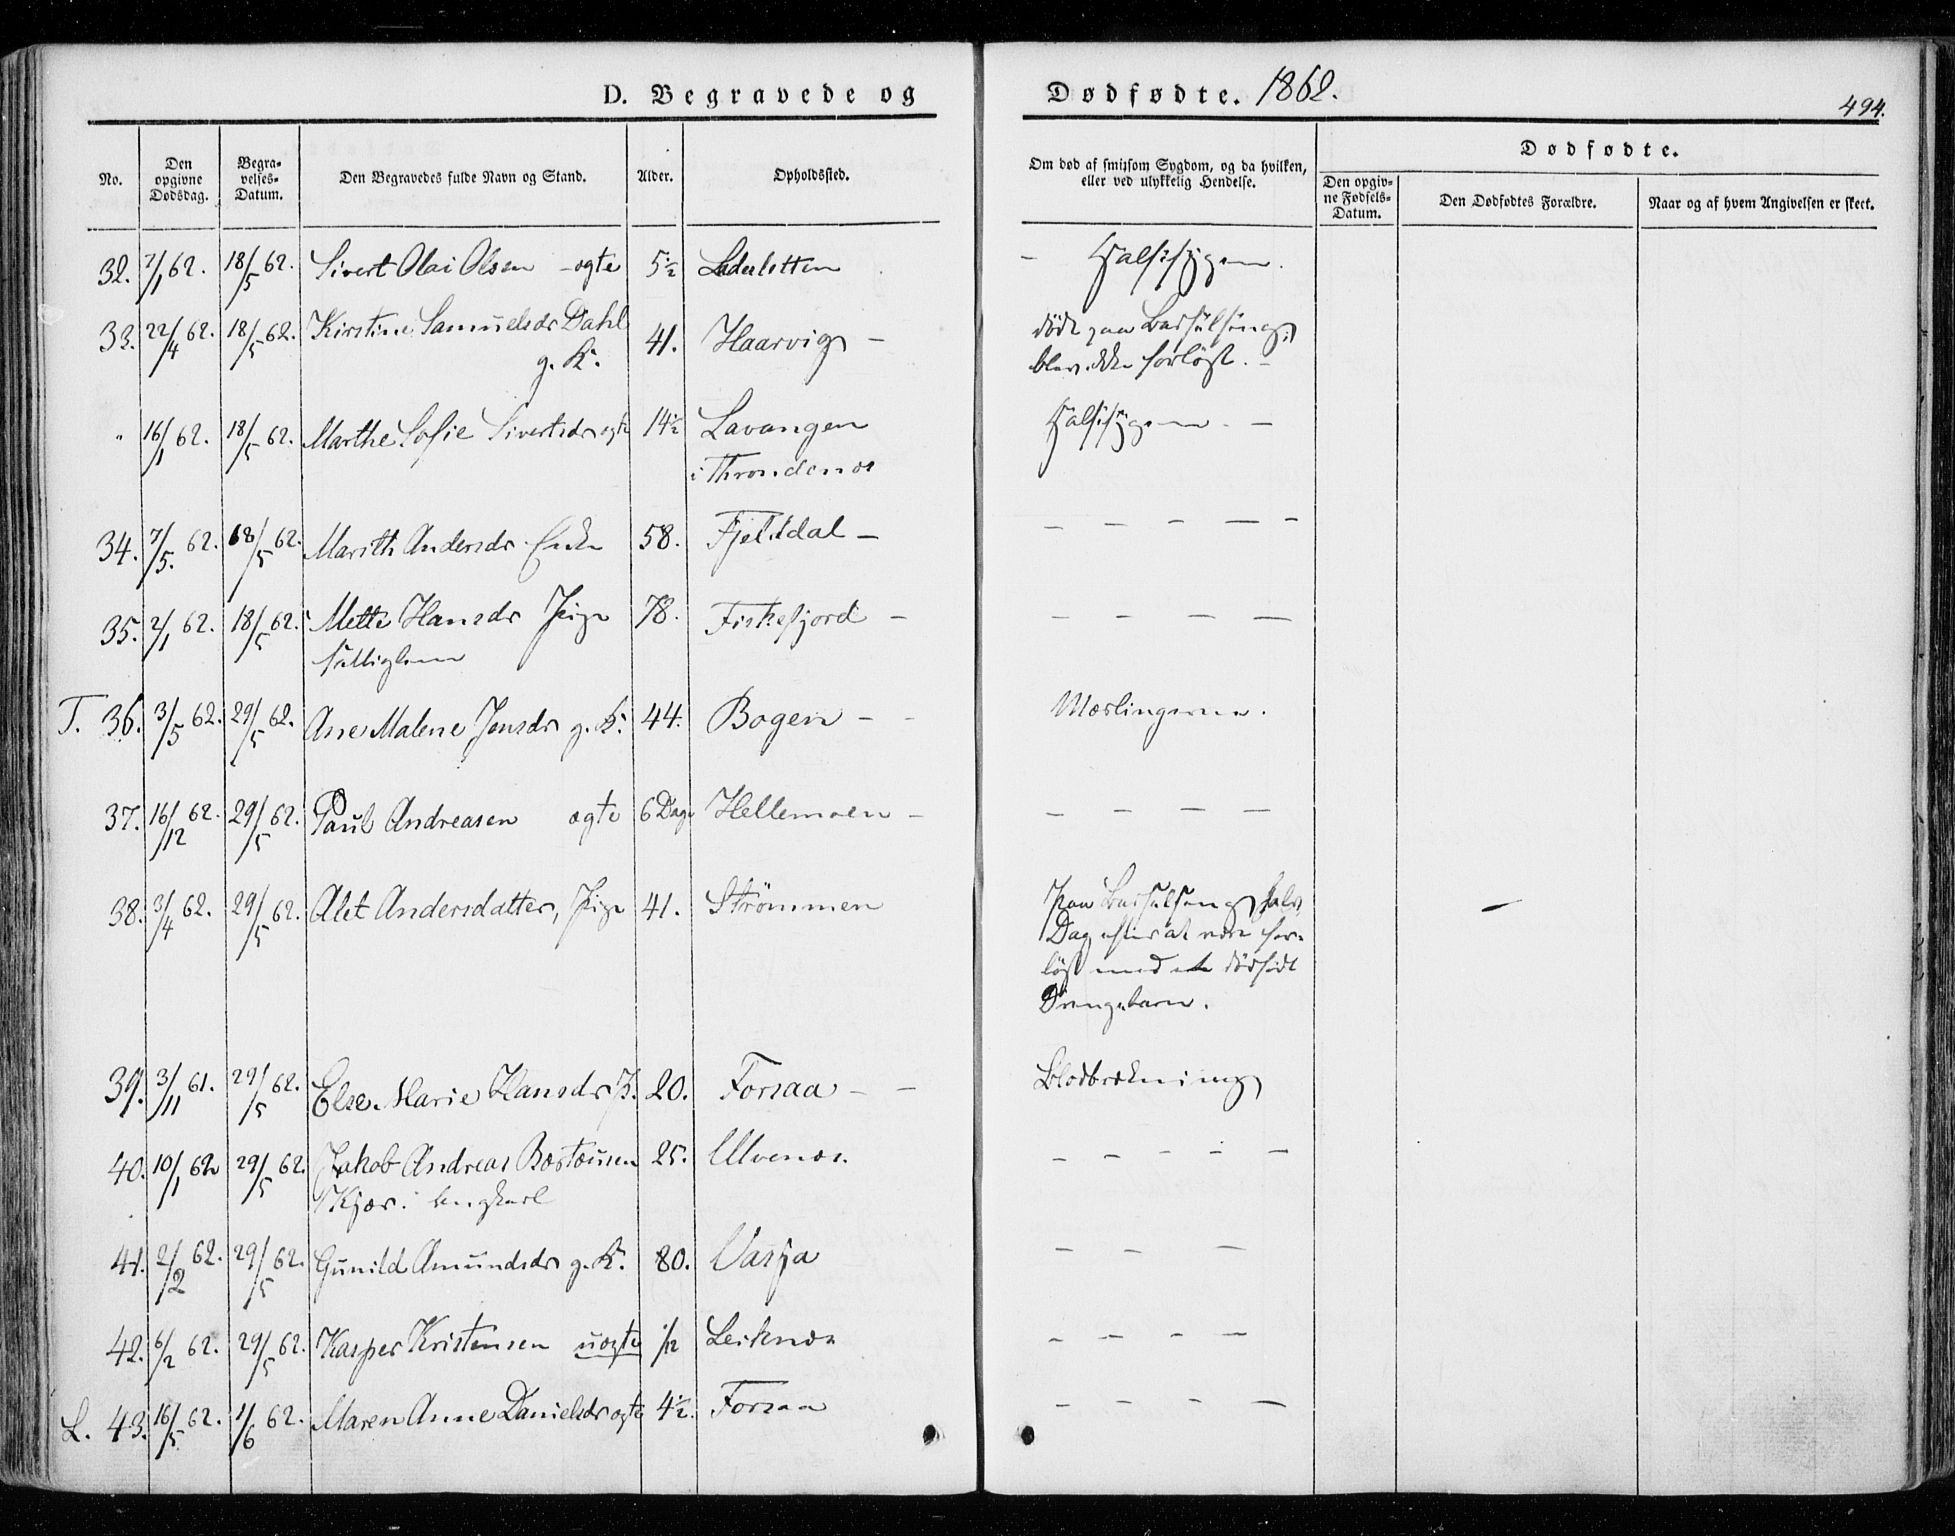 D. Begravede og Dødfødte. 1862.
494.
No.
Den opgivne Dødsdag.
Begravelses-Datum.
Den Begravedes fulde Navn og Stand.
Alder.
Opholdssted.
Om død af smitsom Sygdom, og da hvilken, eller ved ulykkelig Hendelse.
Dødfødte.
Den opgivne Fødsels-Datum.
Den Dødfødtes Forældre.
Naar og af hvem Angivelsen er skeet.
32. 7/1 62. 18/5 62. Sivert Olai Olsen - ægte 5 1/2 - Halssygen.
33. 22/4 62. 18/5 62. Kirstine Samuelsdr Dahl 41. Haarvig - døde paa Barselseng,
g. K. blev ikke forløst. -
" 16/1 62. 18/5 62. Marthe Sofie Sivertsdr ægte 14 1/2 Lavangen Halssygen. -
i Throndenæs
34. 7/5. 62. 18/5 62. Marith Andersdr Enke 58. Fjelddal - - - - - -
35. 2/1 62. 18/5 62. Mette Hansdr Pige 78. Fiskefjord - - - - -
Fattiglem
T. 36. 3/5 62. 29/5 62. Ane Malene Jensdr g. K. 44. Bogen - - Mæslingerne.
37. 16/12 62. 29/5 62. Paul Andreasen ægte 6 Dage Hellemoen - - - - -
38. 3/4 62. 29/5 62. Alet Andersdatter, Pige 41. Strömmen paa Barselseng, halv -
Dag efter at være for-
løst med et dødfødt
Drengebarn.
39. 3/11 61. 29/5 62. Else Marie Hansdr P. 20. Forsaa - - Blodbrækning
40. 10/1 62 29/5 62. Jakob Andreas Bastesen 25. Ulvenæs. - - - - -
Kjær: Ungkarl
41. 2/2 62. 29/5 62. Gunild Amundsdr g. K. 80. - - -
42. 6/2 62. 29/5 62. Kasper Kristensen uægte 1/2 Leiknæs - - - -
L. 43. 16/5 62. 1/6 62. Maren Anne Danielsdr ægte 4 1/2. Forsaa - - - -